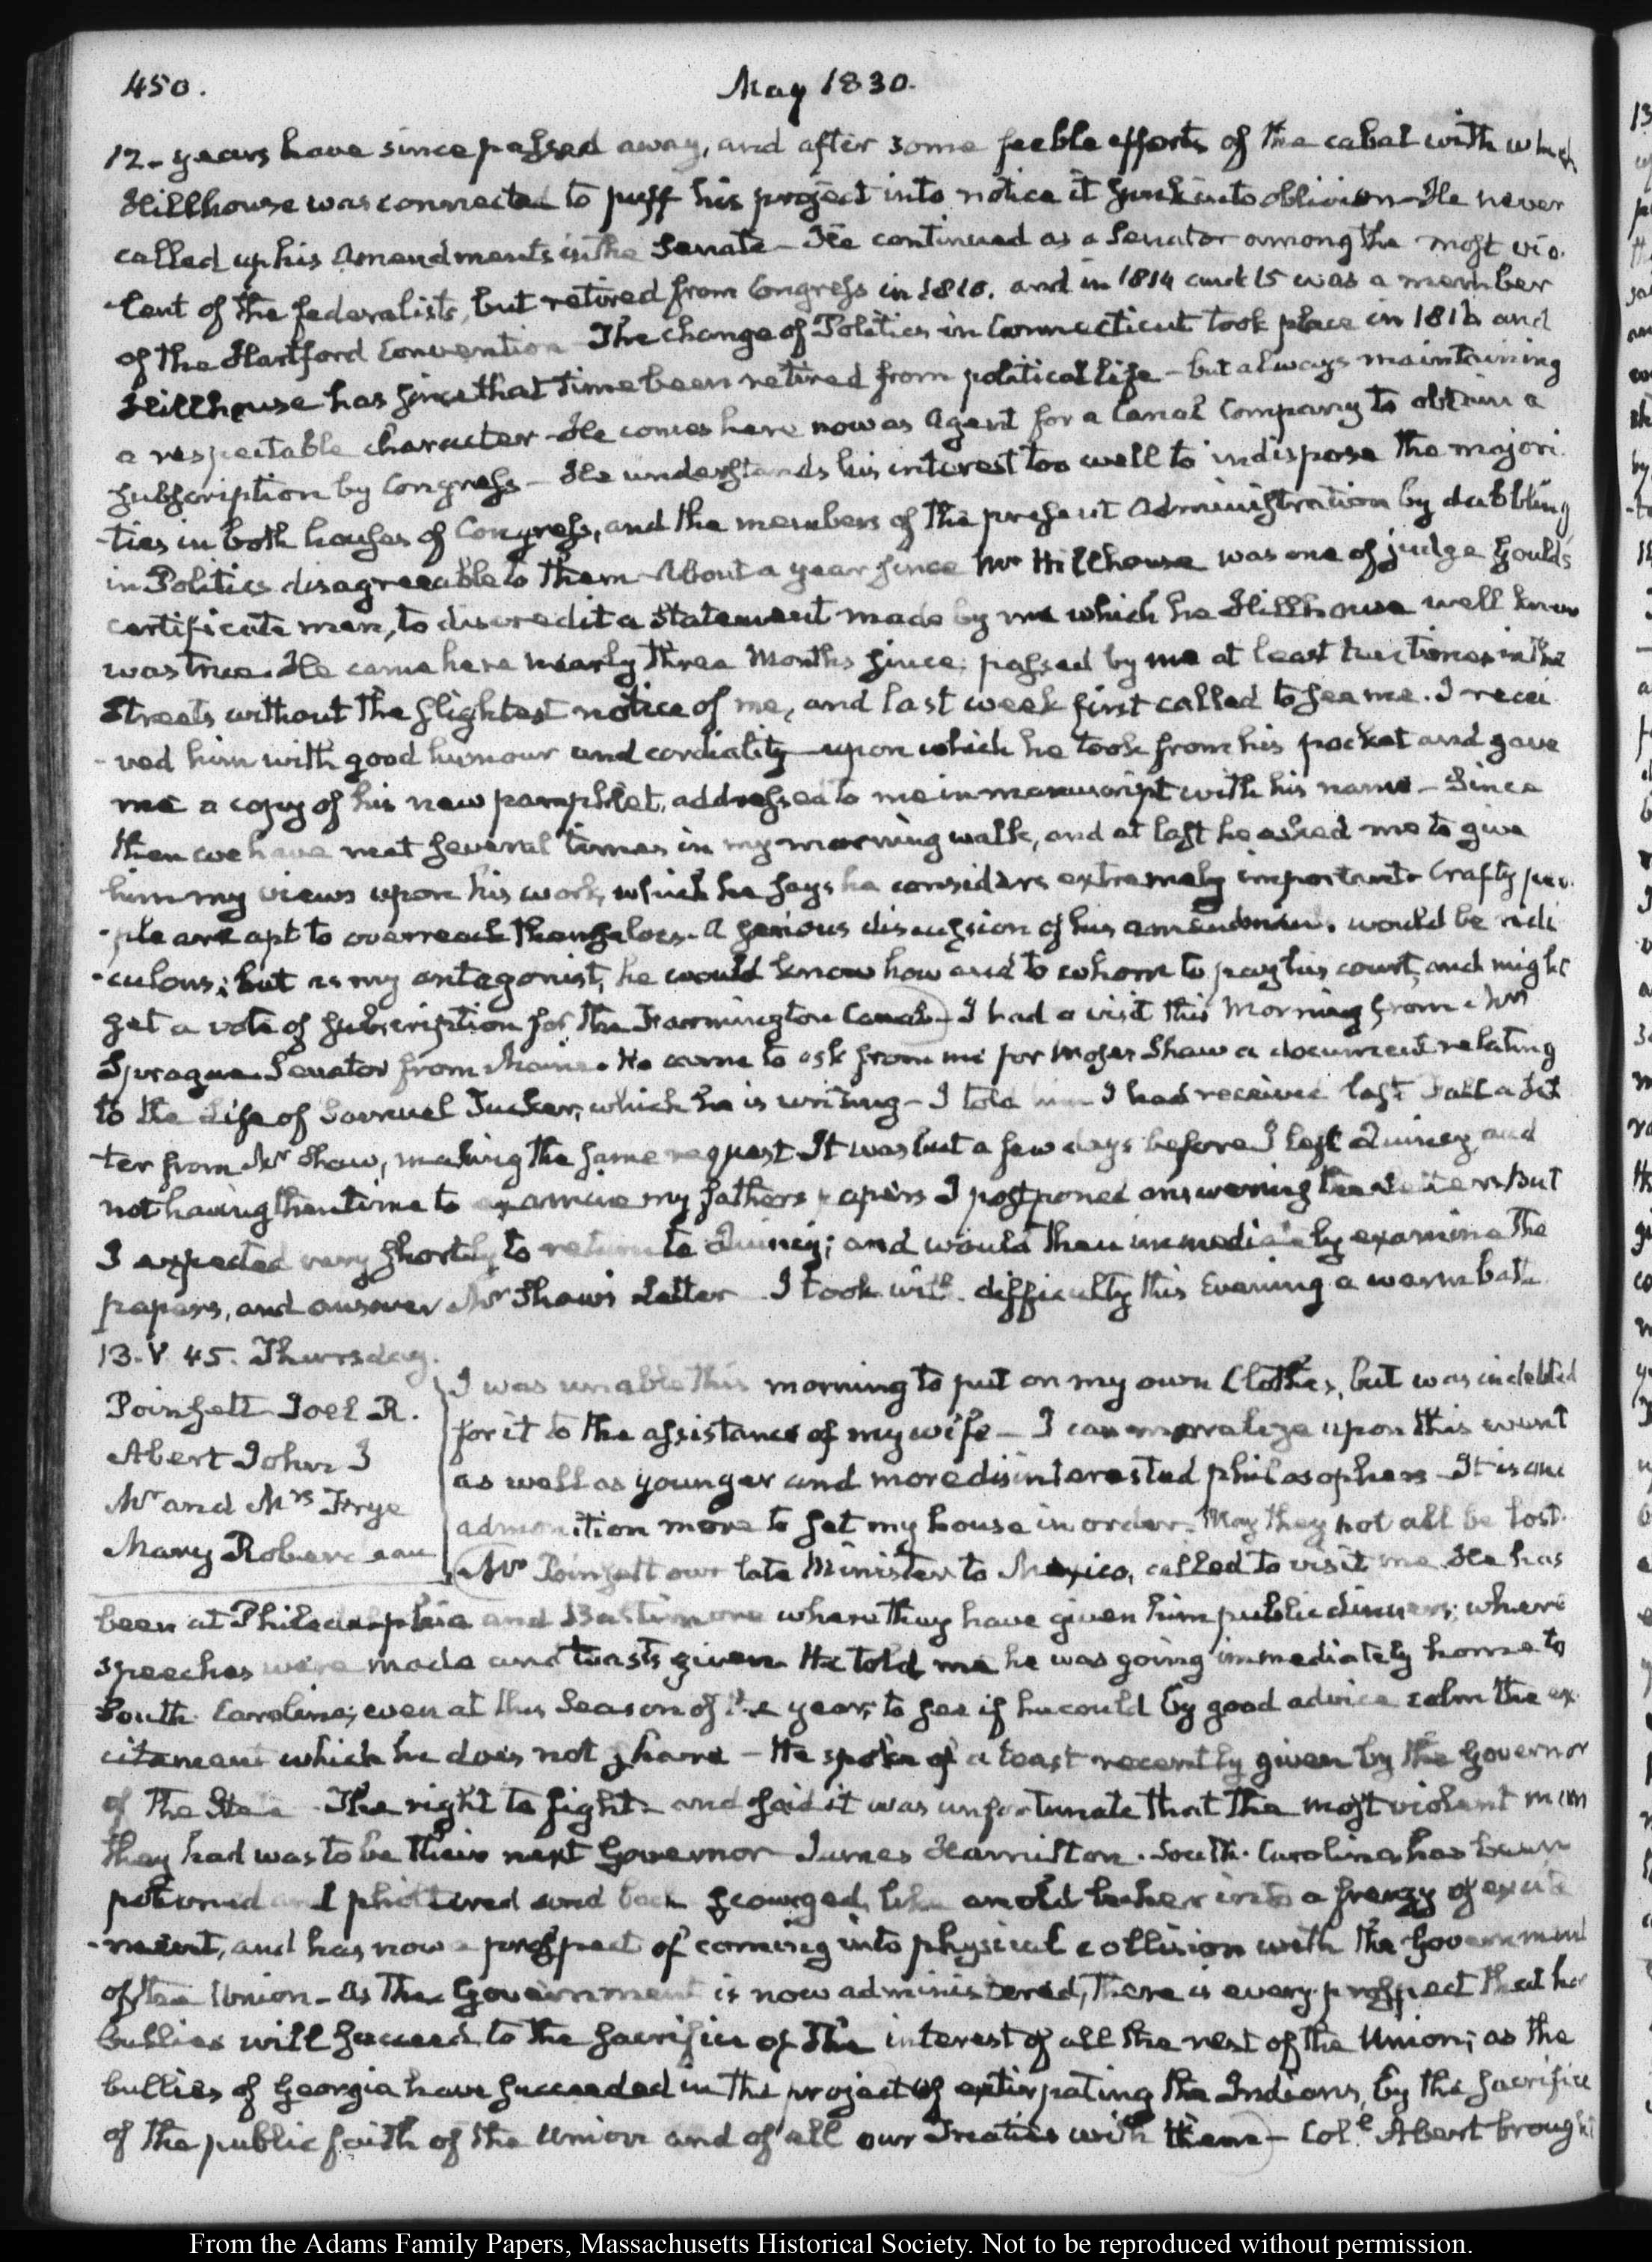 450.
May 1830.
12 - years have since passed away, and after some feeble efforts of the cabal with which
Hillhouse was connected to puff his project into notice it sunk into oblivion - He never
called up his Amendments in the Senate - He continued as a Senator among the most vio-
-lent of the federalists, but retired from Congress in 1810. and in 1814 and 15 was a member
of the Hartford Convention - The change of Politics in Connecticut took place in 1816 and
Hillhouse has since that time been retired from political life - but always maintaining
a respectable character - He comes here now as Agent for a Canal Company to obtain a
subscription by Congress - He understands his interest too well to indispose the majori-
-ties in both houses of Congress, and the members of the present Administration by dabbling
in Politics disagreeable to them - About a year since Mr Hillhouse was one of judge Goulds
certificate men, to discredit a statement made by me which he Hillhouse well knew
was true. He came here nearly three Months since; passed by me at least two times in the
Streets without the slightest notice of me, and last week first called to see me. I recei-
-ved him with good humour and cordiality - upon which he took from his pocket and gave
me a copy of his new pamphlet, addressed to me in manuscript with his name - Since
then we have met several times in my morning walk, and at last he asked me to give
him my views upon his work, which he says he considers extremely important - Crafty peo-
-ple are apt to overreach themselves. A serious discussion of his amendmen. would be ridi
-culous; but as my antagonist, he would know how and to whom to pay his court, and might
get a vote of subscription for the Farmington Canal - I had a visit this Morning from Mr
Sprague Senator from Maine. He came to ask from me for Moses Shaw a document relating
to the Life of Samuel Tucker, which he is writing - I told him I had received last Fall a Let
-ter from Mr Shaw, making the same request. It was but a few days before I left Quincy, and
not having then time to examine my fathers papers I postponed answering the Letter. But
I expected very shortly to return to Quincy; and would then immediately examine the
papers, and answer Mr Shaw's Letter. I took with difficulty this Evening a warm bath.
13. V. 45. Thursday.
Poinsett Joel R.
Abert John J
Mr and Mrs Frye
Mary Roberdeau
I was unable this morning to put on my own Clothes, but was indebted
for it to the assistance of my wife - I can moralize upon this event
as well as younger and more disinterested philosophers - It is one
admonition more to set my house in order. May they not all be lost.
Mr Poinsett our late Minister to Mexico, called to visit me. He has
been at Philadelphia and Baltimore where they have given him public dinners; where
speeches were made and toasts given. He told me he was going immediately home to
South Carolina; even at this Season of the year; to see if he could by good advice calm the ex-
citement which he does not share - He spoke of a toast recently given by the Governor
of the State - The right to fight - and said it was unfortunate that the most violent man
they had was to be their next Governor - James Hamilton. South Carolina has been
potioned and philtered and back scourged, like an old lecher into a frenzy of excite
-ment, and has now a prospect of coming into physical collision with the Government
of the Union - As the Government is now administered, there is every prospect that her
bullies will succeed to the sacrifice of the interest of all the rest of the Union; as the
bullies of Georgia have succeeded in the project of extirpating the Indians, by the sacrifice
of the public faith of the Union and of all our Treaties with them - Coll Abert brought
From the Adams Family Papers, Massachusetts Historical Society. Not to be reproduced without permission.